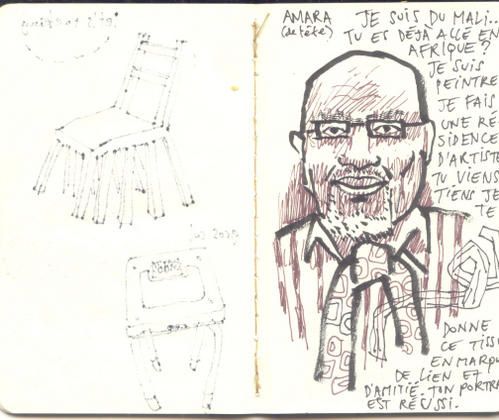 AMARA
(de tête)
JE SUIS DU MALI..
TU ES DÉJÀ ALLÉ EN
AFRIQUE?
JE SUIS
PEINTRE
JE FAIS
UNE RÉ
SIDENCE
D'ARTISTE
TU VIENS
TIENS JE
TE
DONNE
CE TISSU
EN MARQU
DE LIEN ET
D'AMITIÉ. TON PORTRA
EST RÉUSSI.